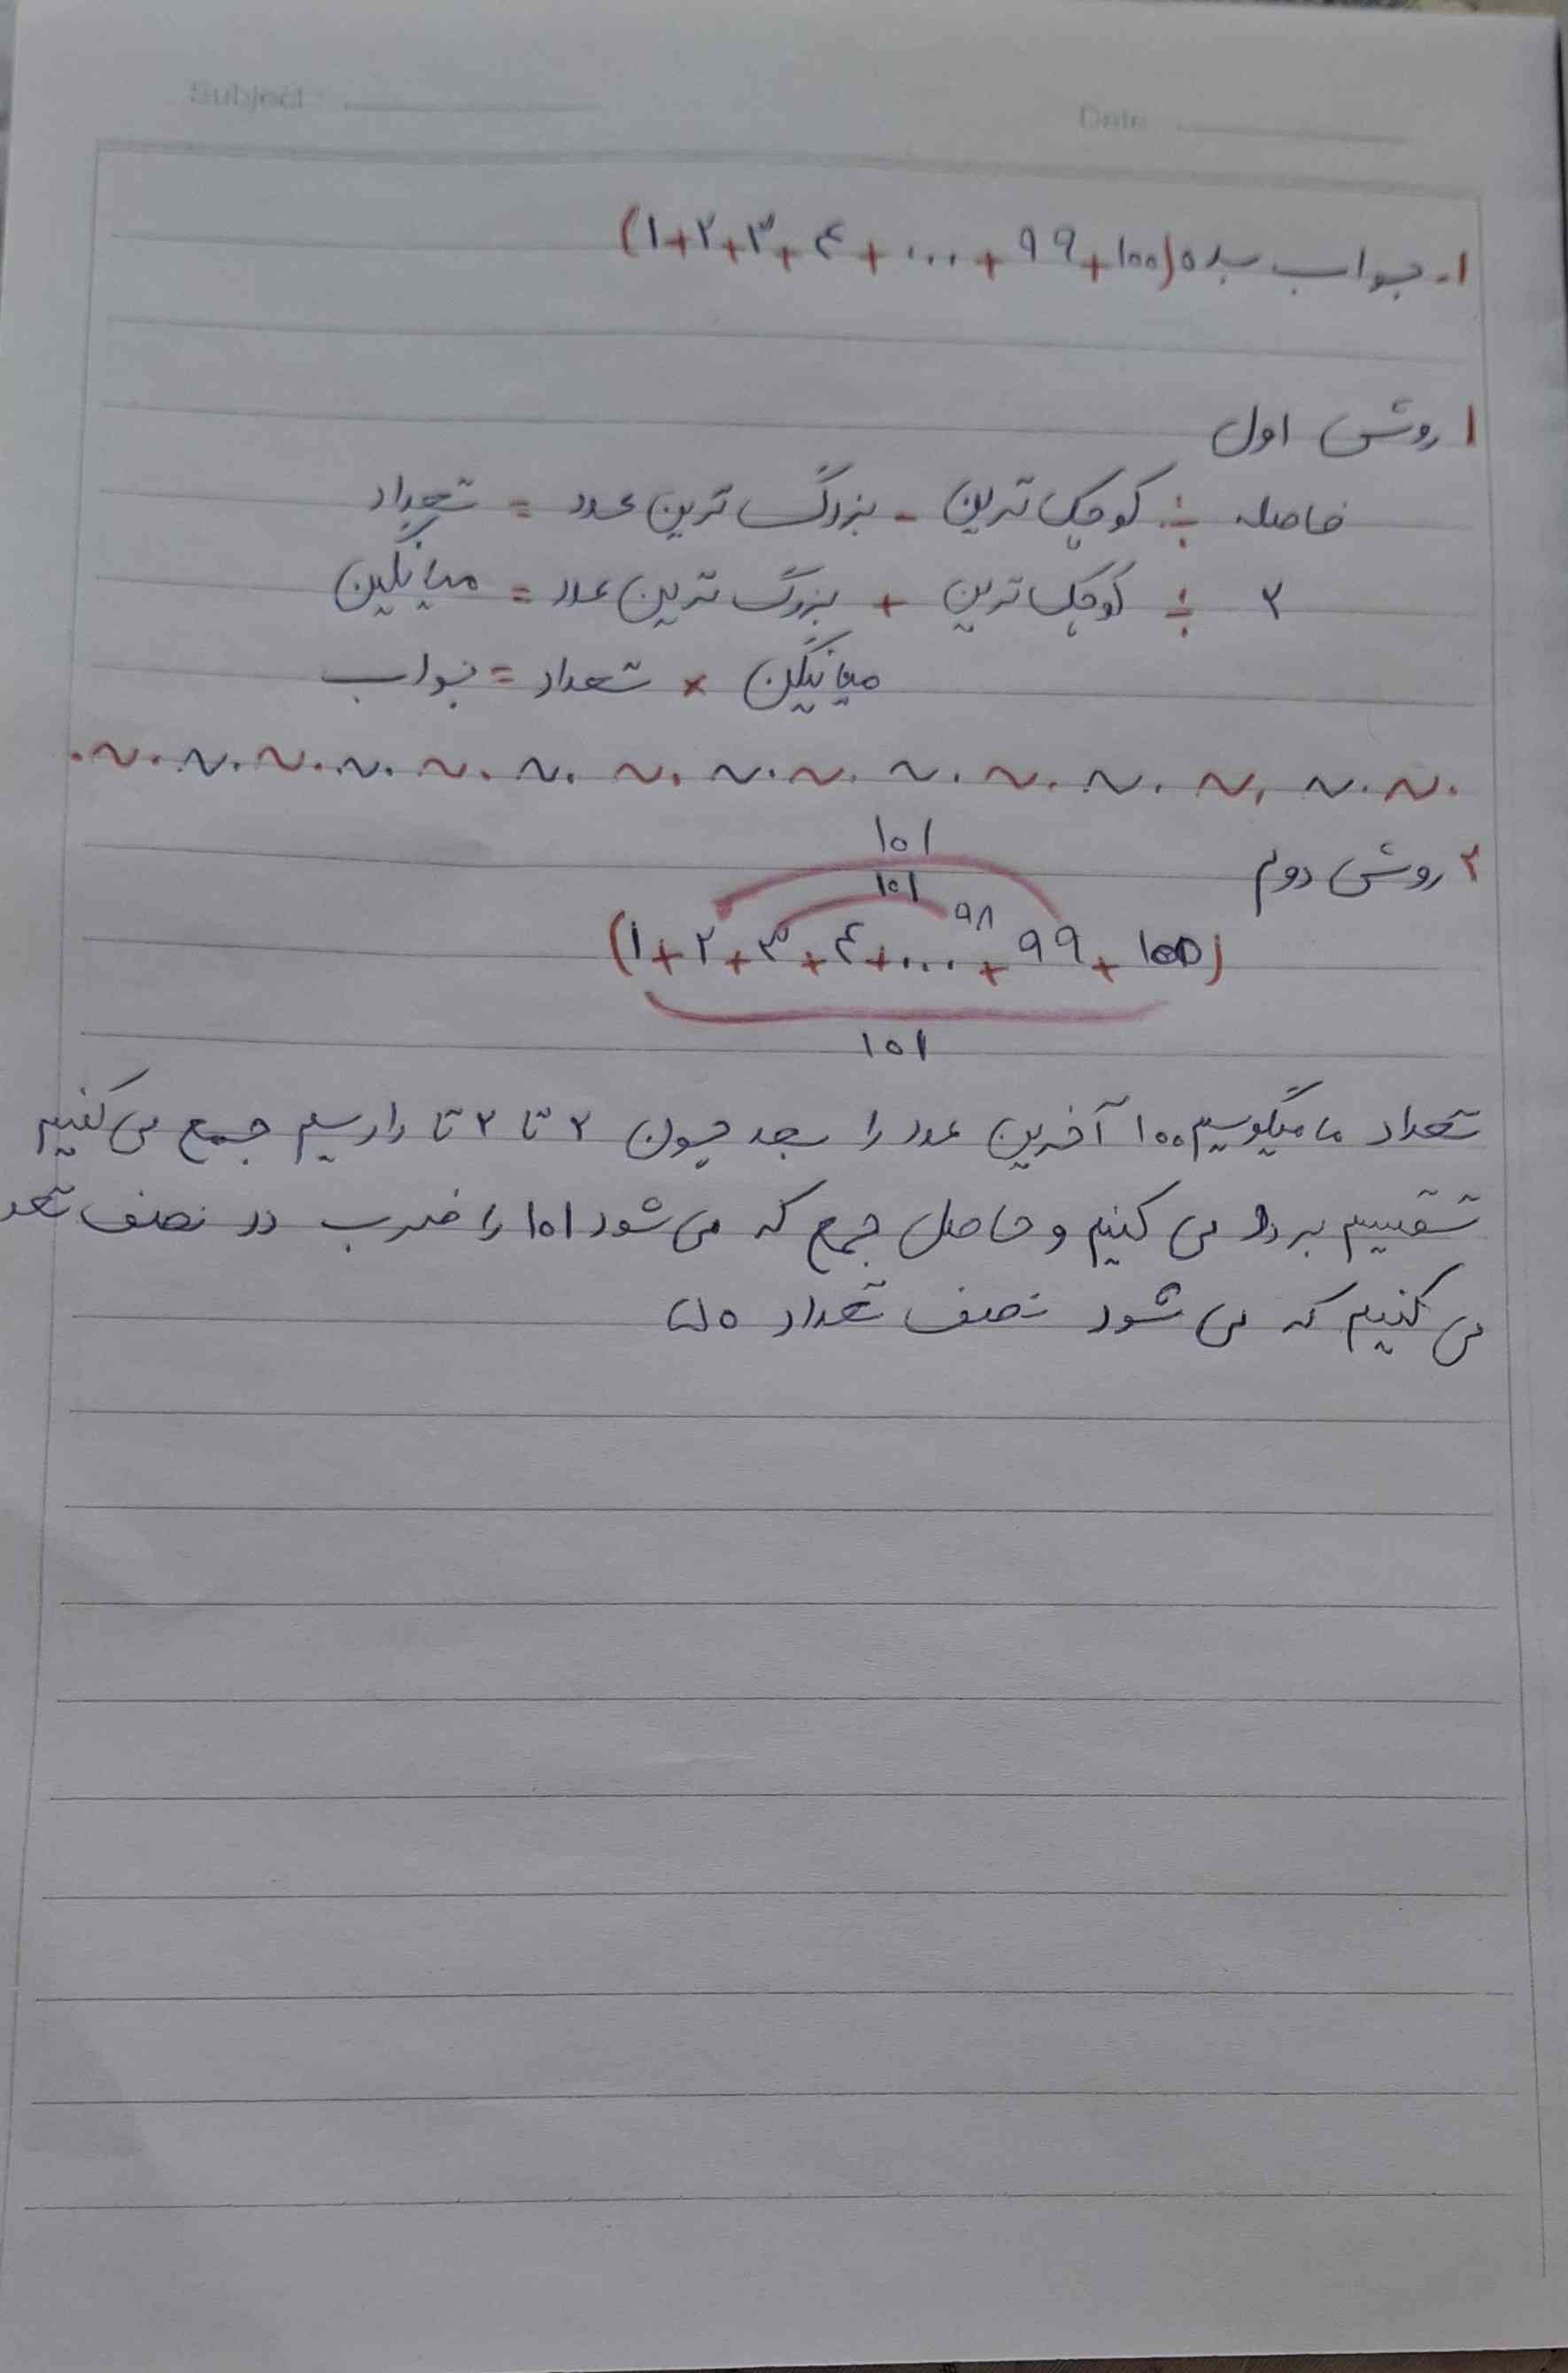 Subject:
Date
۱- جواب بده (۱+۲+۳+۴+...+۹۹+۱۰۰)
۱ روش اول
فاصله ÷ کوچک ترین - بزرگ ترین عدد = تعداد
۲ ÷ کوچک ترین + بزرگ ترین عدد = میانگین
میانگین × تعداد = جواب
۱۰۱
۲ روش دوم
۱۰۱
۹۸
(۱+۲+۳+۴+...+۹۹+۱۰۰)
۱۰۱
تعداد ما میگوییم ۱۰۰ آخرین عدد را بعد چون ۲ تا ۲ تا داریم جمع می کنیم
تقسیم بر دو می کنیم و حاصل جمع که می شود ۱۰۱ را ضرب در نصف تعد
می کنیم که می شود نصف تعداد ۵۰